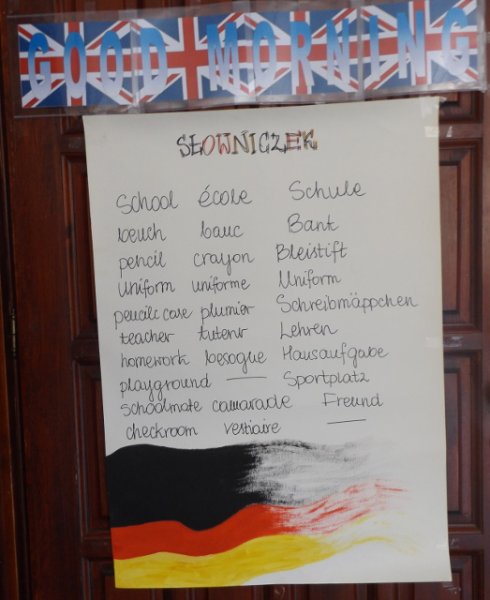 GOOD MORNING
SŁOWNICZEK
School école Schule
beuch bauc Bank
pencil crayon Bleistift
uniform uniforme Uniform
pencile case plumier Schreibmäppchen
teacher tutenr Lehren
homework besogue Hausaufgabe
playground — Sportplatz
schoolmate camarade Freund
checkroom vestiaire —